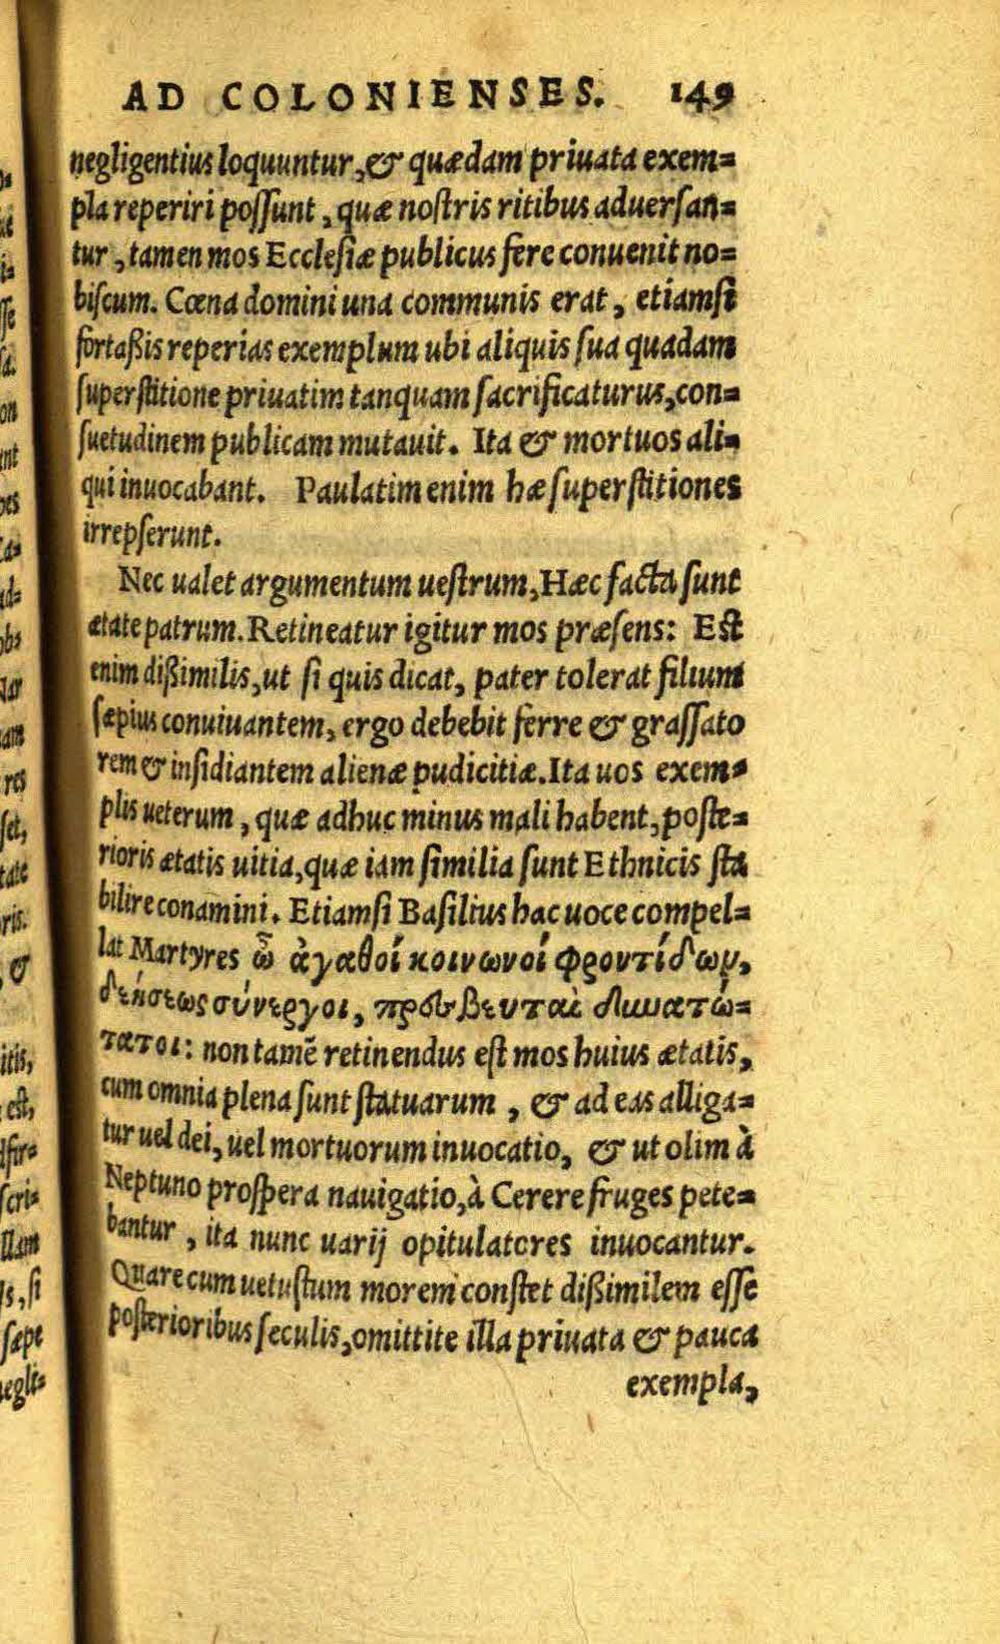 AD COLONIENSES. 149
negligentius loquuntur, & quædam priuata exem=
pla reperiri possunt, quæ nostris ritibus aduersan=
tur, tamen mos Ecclesiæ publicus fere conuenit no=
biscum. Cœna domini una communis erat, etiamsi
fortaßis reperias exemplum ubi aliquis sua quadam
superstitione priuatim tanquam sacrificaturus, con=
suetudinem publicam mutauit. Ita & mortuos ali=
qui inuocabant. Paulatim enim hæ superstitiones
irrepserunt.
Nec ualet argumentum uestrum, Hæc facta sunt
ætate patrum. Retineatur igitur mos præsens: Est
enim dißimilis, ut si quis dicat, pater tolerat filium
sæpius conuiuantem, ergo debebit ferre & grassato
rem & insidiantem alienæ pudicitiæ. Ita uos exem=
plis ueterum, quæ adhuc minus mali habent, poste=
rioris ætatis uitia, quæ iam similia sunt Ethnicis sta
bilire conamini. Etiamsi Basilius hac uoce compel=
lat Martyres ὦ ἀγαθοί κοινωνοί φροντίδωμ,
δεήσεως σύνεργοι, πρέσβευταὶ δυνατώ=
τατοι: non tamẽ retinendus est mos huius ætatis,
cum omnia plena sunt statuarum, & ad eas alliga=
tur uel dei, uel mortuorum inuocatio, & ut olim à
Neptuno prospera nauigatio, à Cerere fruges pete=
bantur, ita nunc uarij opitulatores inuocantur.
Quare cum uetustum morem constet dißimilem esse
posterioribus seculis, omittite illa priuata & pauca
exempla,